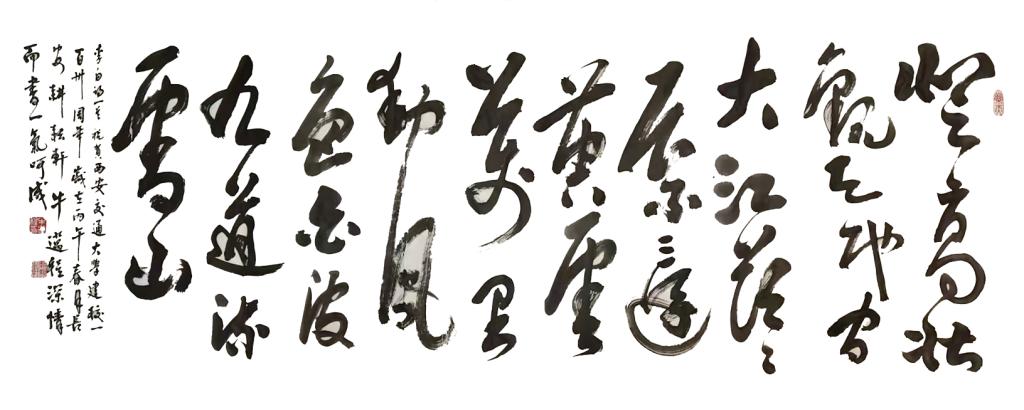 登高壯
觀天地間
大江茫々
去不還
黃雲
萬里
動風
色白波
九道流
雪山
李白詩一首祝賀西安交通大學建校一
百卅周年歲在丙午春月長
安耕耘軒牛深情
而書一氣呵成